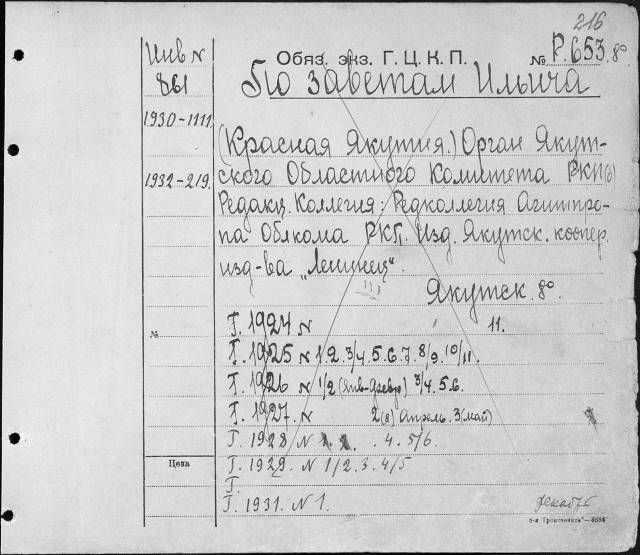 216
Инв N
861
1930-1111.
1932-219.
№
Цена
Обяз. экз. Г. Ц. К. П. № Р.653. 8º.
По заветам Ильича
(Красная Якутия.) Орган Якут-
ского Областного Комитета РКП(б)
Редакц. Коллегия: Редколлегия Агитпро-
па Обкома РКП. Изд. Якутск. коопер.
изд-ва „Ленинец".
Якутск. 8º.
Г. 1924 N 11.
Г. 1925 N 1. 2. 3/4. 5. 6. 7. 8/9. 10/11.
Г. 1926 N 1/2 (янв-февр) 3/4. 5. 6.
Г. 1927. N 2(8) Апрель. 3(май)
Г. 1928 N 1. 2. 4. 5/6.
Г. 1929. N 1/2. 3. 4/5
Г.
Г. 1931. N 1.